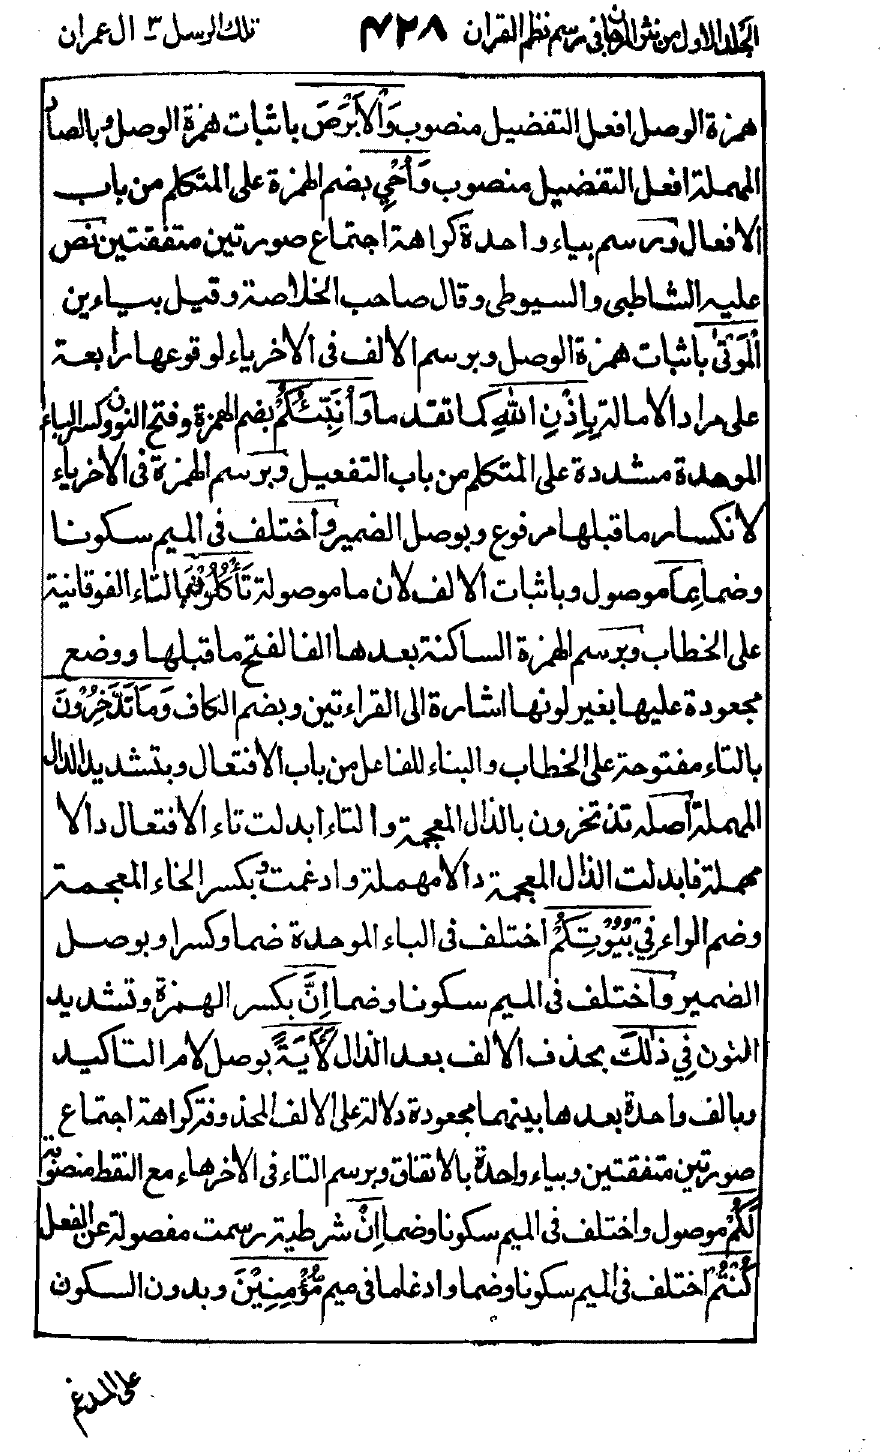 الجلد الاول من نثر المرجان في رسم نظم القران ۴۲۸ تلك الرسل ۳ ال عمران
همزة الوصل افعل التفضيل منصوب وَالْاَبْرَصَ باثبات همزة الوصل وبالصاد
المهملة افعل التفضيل منصوب وَاُحْيِ بضم الهمزة على المتكلم من باب
الافعال ورسم بياء واحدة كراهة اجتماع صورتين متفقتين نص
عليه الشاطبي والسيوطي وقال صاحب الخلاصة وقيل بياءين
الْمَوْتٰى باثبات همزة الوصل وبرسم الالف في الاخر ياء لوقوعها رابعة
على مراد الامالة بِاِذْنِ اللّٰهِ كما تقدم وَاُنَبِّئُكُمْ بضم الهمزة وفتح النون وكسر الباء
الموحدة مشددة على المتكلم من باب التفعيل وبرسم الهمزة في الاخر ياء
لانكسار ما قبلها مرفوع وبوصل الضمير واختلف في الميم سكونا
وضما بِمَا موصول وباثبات الالف لان ما موصولة تَأْكُلُوْنَ بالتاء الفوقانية
على الخطاب وبرسم الهمزة الساكنة بعدها الفا لفتح ما قبلها ووضع
مجعودة عليها بغير لونها اشارة الى القراءتين وبضم الكاف وَمَا تَدَّخِرُوْنَ
بالتاء مفتوحة على الخطاب والبناء للفاعل من باب الافتعال وبتشديد الدال
المهملة اصله تذتخرون بالذال المعجمة والتاء ابدلت تاء الافتعال دالا
مهملة فابدلت الذال المعجمة دالا مهملة وادغمت وبكسر الخاء المعجمة
وضم الراء فِيْ بُيُوْتِكُمْ اختلف في الباء الموحدة ضما وكسرا وبوصل
الضمير واختلف في الميم سكونا وضما اِنَّ بكسر الهمزة وتشديد
النون فِيْ ذٰلِكَ بحذف الالف بعد الذال لَاٰيَةً بوصل لام التاكيد
وبالف واحدة بعدها بينهما مجعودة دلالة على الالف المحذوفة كراهة اجتماع
صورتين متفقتين وبياء واحدة بالاتفاق وبرسم التاء في الاخر هاء مع النقط منصوبة
لَكُمْ موصول واختلف في الميم سكونا وضما اِنْ شرطية رسمت مفصولة عن الفعل
كُنْتُمْ اختلف في الميم سكونا وضما وادغاما في ميم مُّؤْمِنِيْنَ وبدون السكون
على المدغم